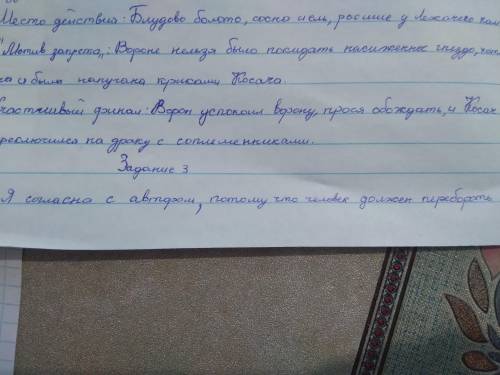 Место действия: Блудово болото, сосна и ель, росшие у Лежачего кам
"Мотив запрета": Вороне нельзя было покидать насиженное гнездо, хот
на и была напугана криками Косача.
Счастливый финал: Ворон успокоил ворону, прося обождать, и Косач
реключился на драку с соплеменниками.
Задание 3
Я согласна с автором, потому что человек должен перебороть